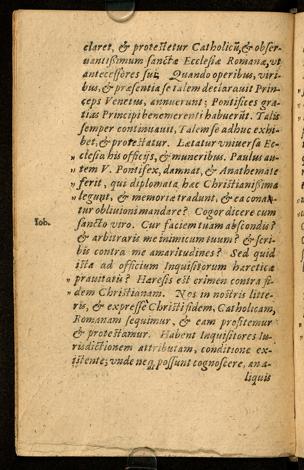 claret, & protestetur Catholicũ, & obser-
uantissimum sanctæ Ecclesiæ Romanæ, vt
antecessores sui. Quando operibus, viri-
bus, & præsentia se talem declarauit Prin-
ceps Venetus, annuerunt; Pontifices gra-
tias Principi benemerenti habuerũt. Talis
semper continuauit, Talem se adhuc exhi-
bet, & protestatur. Lætatur vniuersa Ec-
„ clesia his officijs, & muneribus. Paulus au-
„ tem V. Pontifex, damnat, & Anathemate
„ ferit, qui diplomata hæc Christianissima
„ legunt, & memoriæ tradunt, & ea conan-
tur obliuioni mandare? Cogor dicere cum
Iob.
sancto viro. Cur faciem tuam abscondis?
& arbitraris me inimicum tuum? & scri-
bis contra me amaritudines? Sed quid
ista ad officium Inquisitorum hæreticæ
„ prauitatis? Hæresis est crimen contra fi-
„ dem Christianam. Nos in nostris litte-
ris, & expresse Christi fidem, Catholicam,
Romanam sequimur, & eam profitemur
& protestamur. Habent Inquisitores Iu-
risdictionem attributam, conditione ex-
istente; vnde neq; possunt cognoscere, an a-
liquis